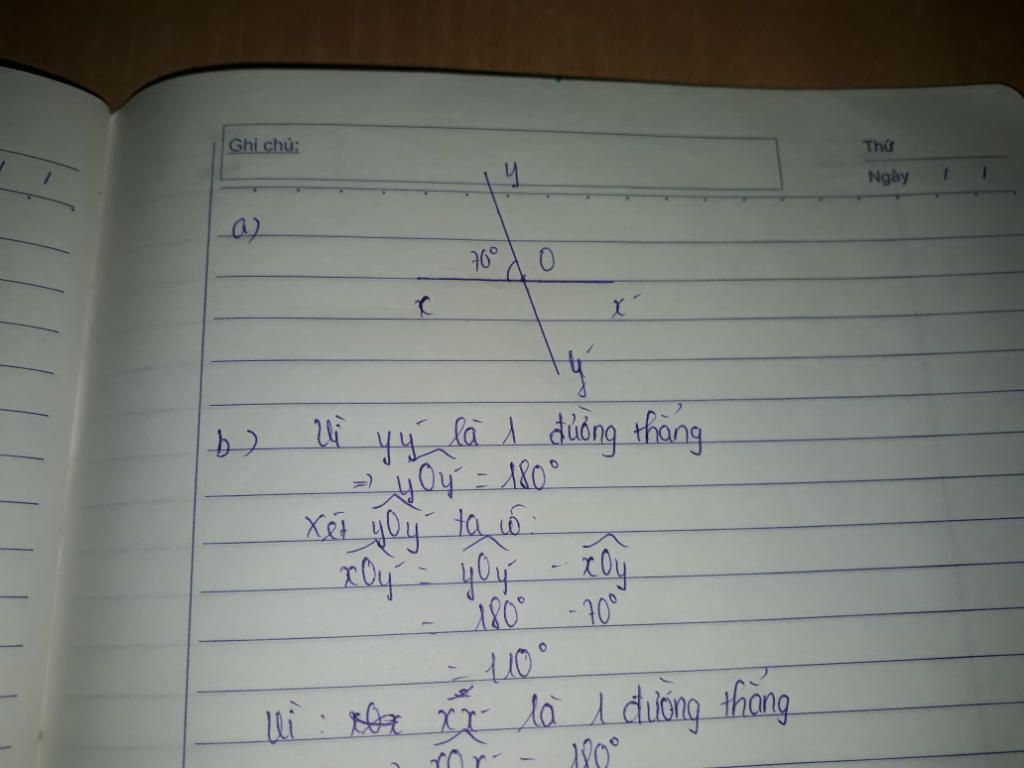 Ghi chú:
Thứ
Ngày / /
a)
y
70° O
x x'
y'
b) Vì yy' là 1 đường thẳng
=> yOy' = 180°
Xét yOy' ta có:
xOy' = yOy' - xOy
= 180° - 70°
= 110°
Vì : xx' là 1 đường thẳng
xOx' = 180°